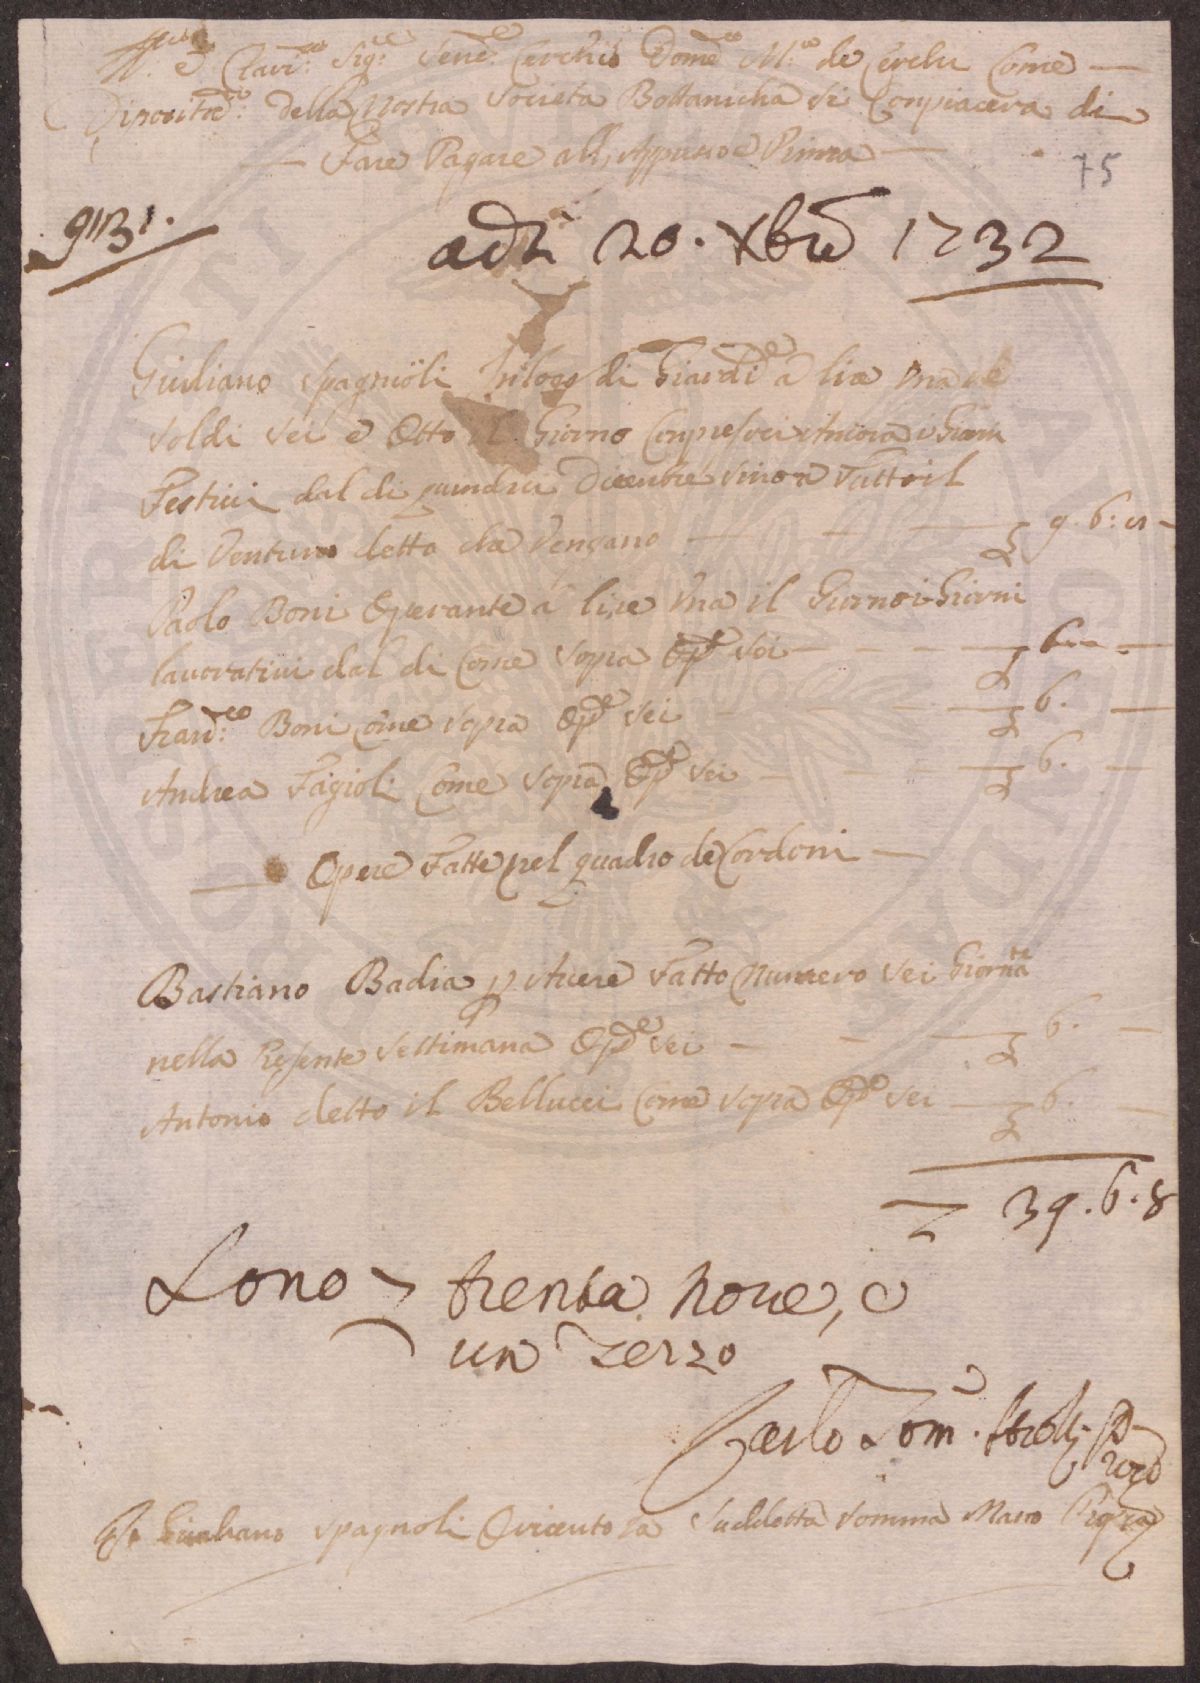 Ill.mo e Clar.mo Sig.re Sen.e Cerchio Dom.co M.a de Cerchi Come
Diposita.rio della Nostra Società Bottanicha si Conpiacera di
Fare Pagare all'Appresso e Prima
75
N 31.
adì 20. Xbre 1732
Giuliano Spagnioli in loco di Giard.e a lire una e
soldi sei e Otto il Giorno Conpresoci Ancora i Giorni
Festivi dal di quindici Dicenbre sino a tutto il
di Ventuno detto che Vengano 9. 6: 8
Paolo Boni Operante a lire una il Giorno i Giorni
lavorativi dal di Come sopra Op.e sei 6. -
Fran.co Boni Come sopra Op.e sei 6. -
Andrea Fagioli Come sopra Op.e sei 6. -
Opere Fatte nel quadro de Cordoni
Bastiano Badia p Avere Fatto Numero sei Giorna.te
nella Presente Settimana Op.e sei 6. -
Antonio detto il Bellucci Come sopra Op.e sei 6. -
39. 6. 8
Sono trenta nove, e
un terzo
Carlo Tom.
Io Giuliano Spagnoli O ricevuto la suddetta somma Mano Propria